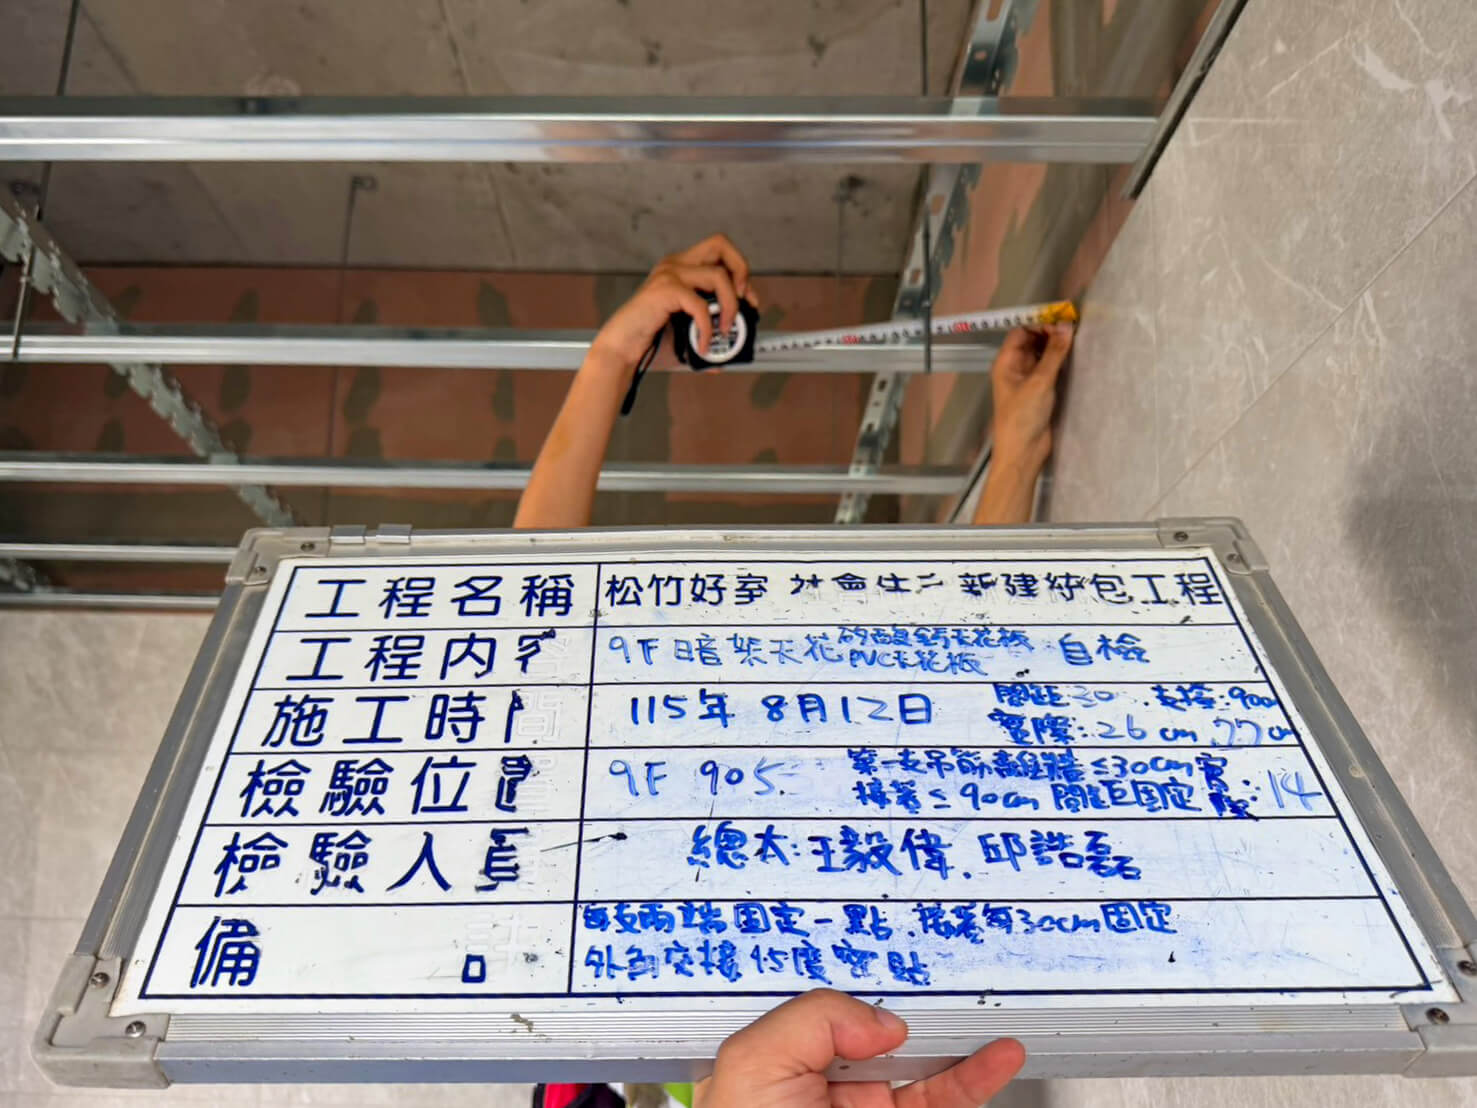 工程名稱 松竹好室 社會住 新建統包工程
工程內 9F暗架天花 矽酸鈣天花板 自檢
PVC天花板
施工時 115年8月12日 間距30 支撐:90cm
實際:26cm, 77cm
檢驗位置 9F 905 第一支吊筋離牆≤30cm實際:14
接著≤90cm 間距固定
檢驗人員 總太:王毅偉.邱誥磊
備 每支兩端固定一點.接著每30cm固定
外角交接45度密貼